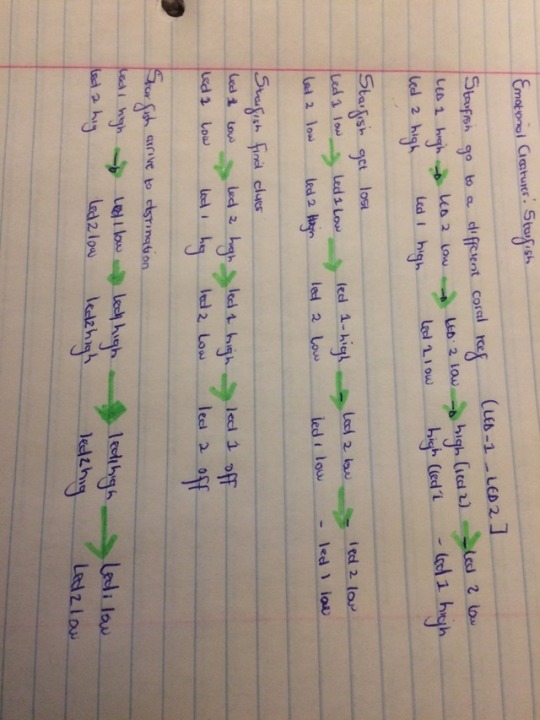 Emotional Creature: Starfish
(LED-1 - LED2]
Starfish go to a different coral reef
LED 1 high → LED 2 low → LED 2 low → high (led 2) → led 2 low
led 2 high led 1 high led 1 low high (led 2 - led 1 high
Starfish get lost
led 1 low → led 1 low → led 1-high → led 2 low → led 2 low
led 2 low led 2 high led 2 low led 1 low - led 1 low
Starfish find clues
led 1 low → led 2 high → led 1 high → led 1 off
led 1 low led 1 hig led 2 low led 2 off
Starfish arrive to destination
led 1 high → led 1 low → led 1 high → led 1 high → led 1 low
led 2 hig led 2 low led 2 high led 2 hig led 2 low